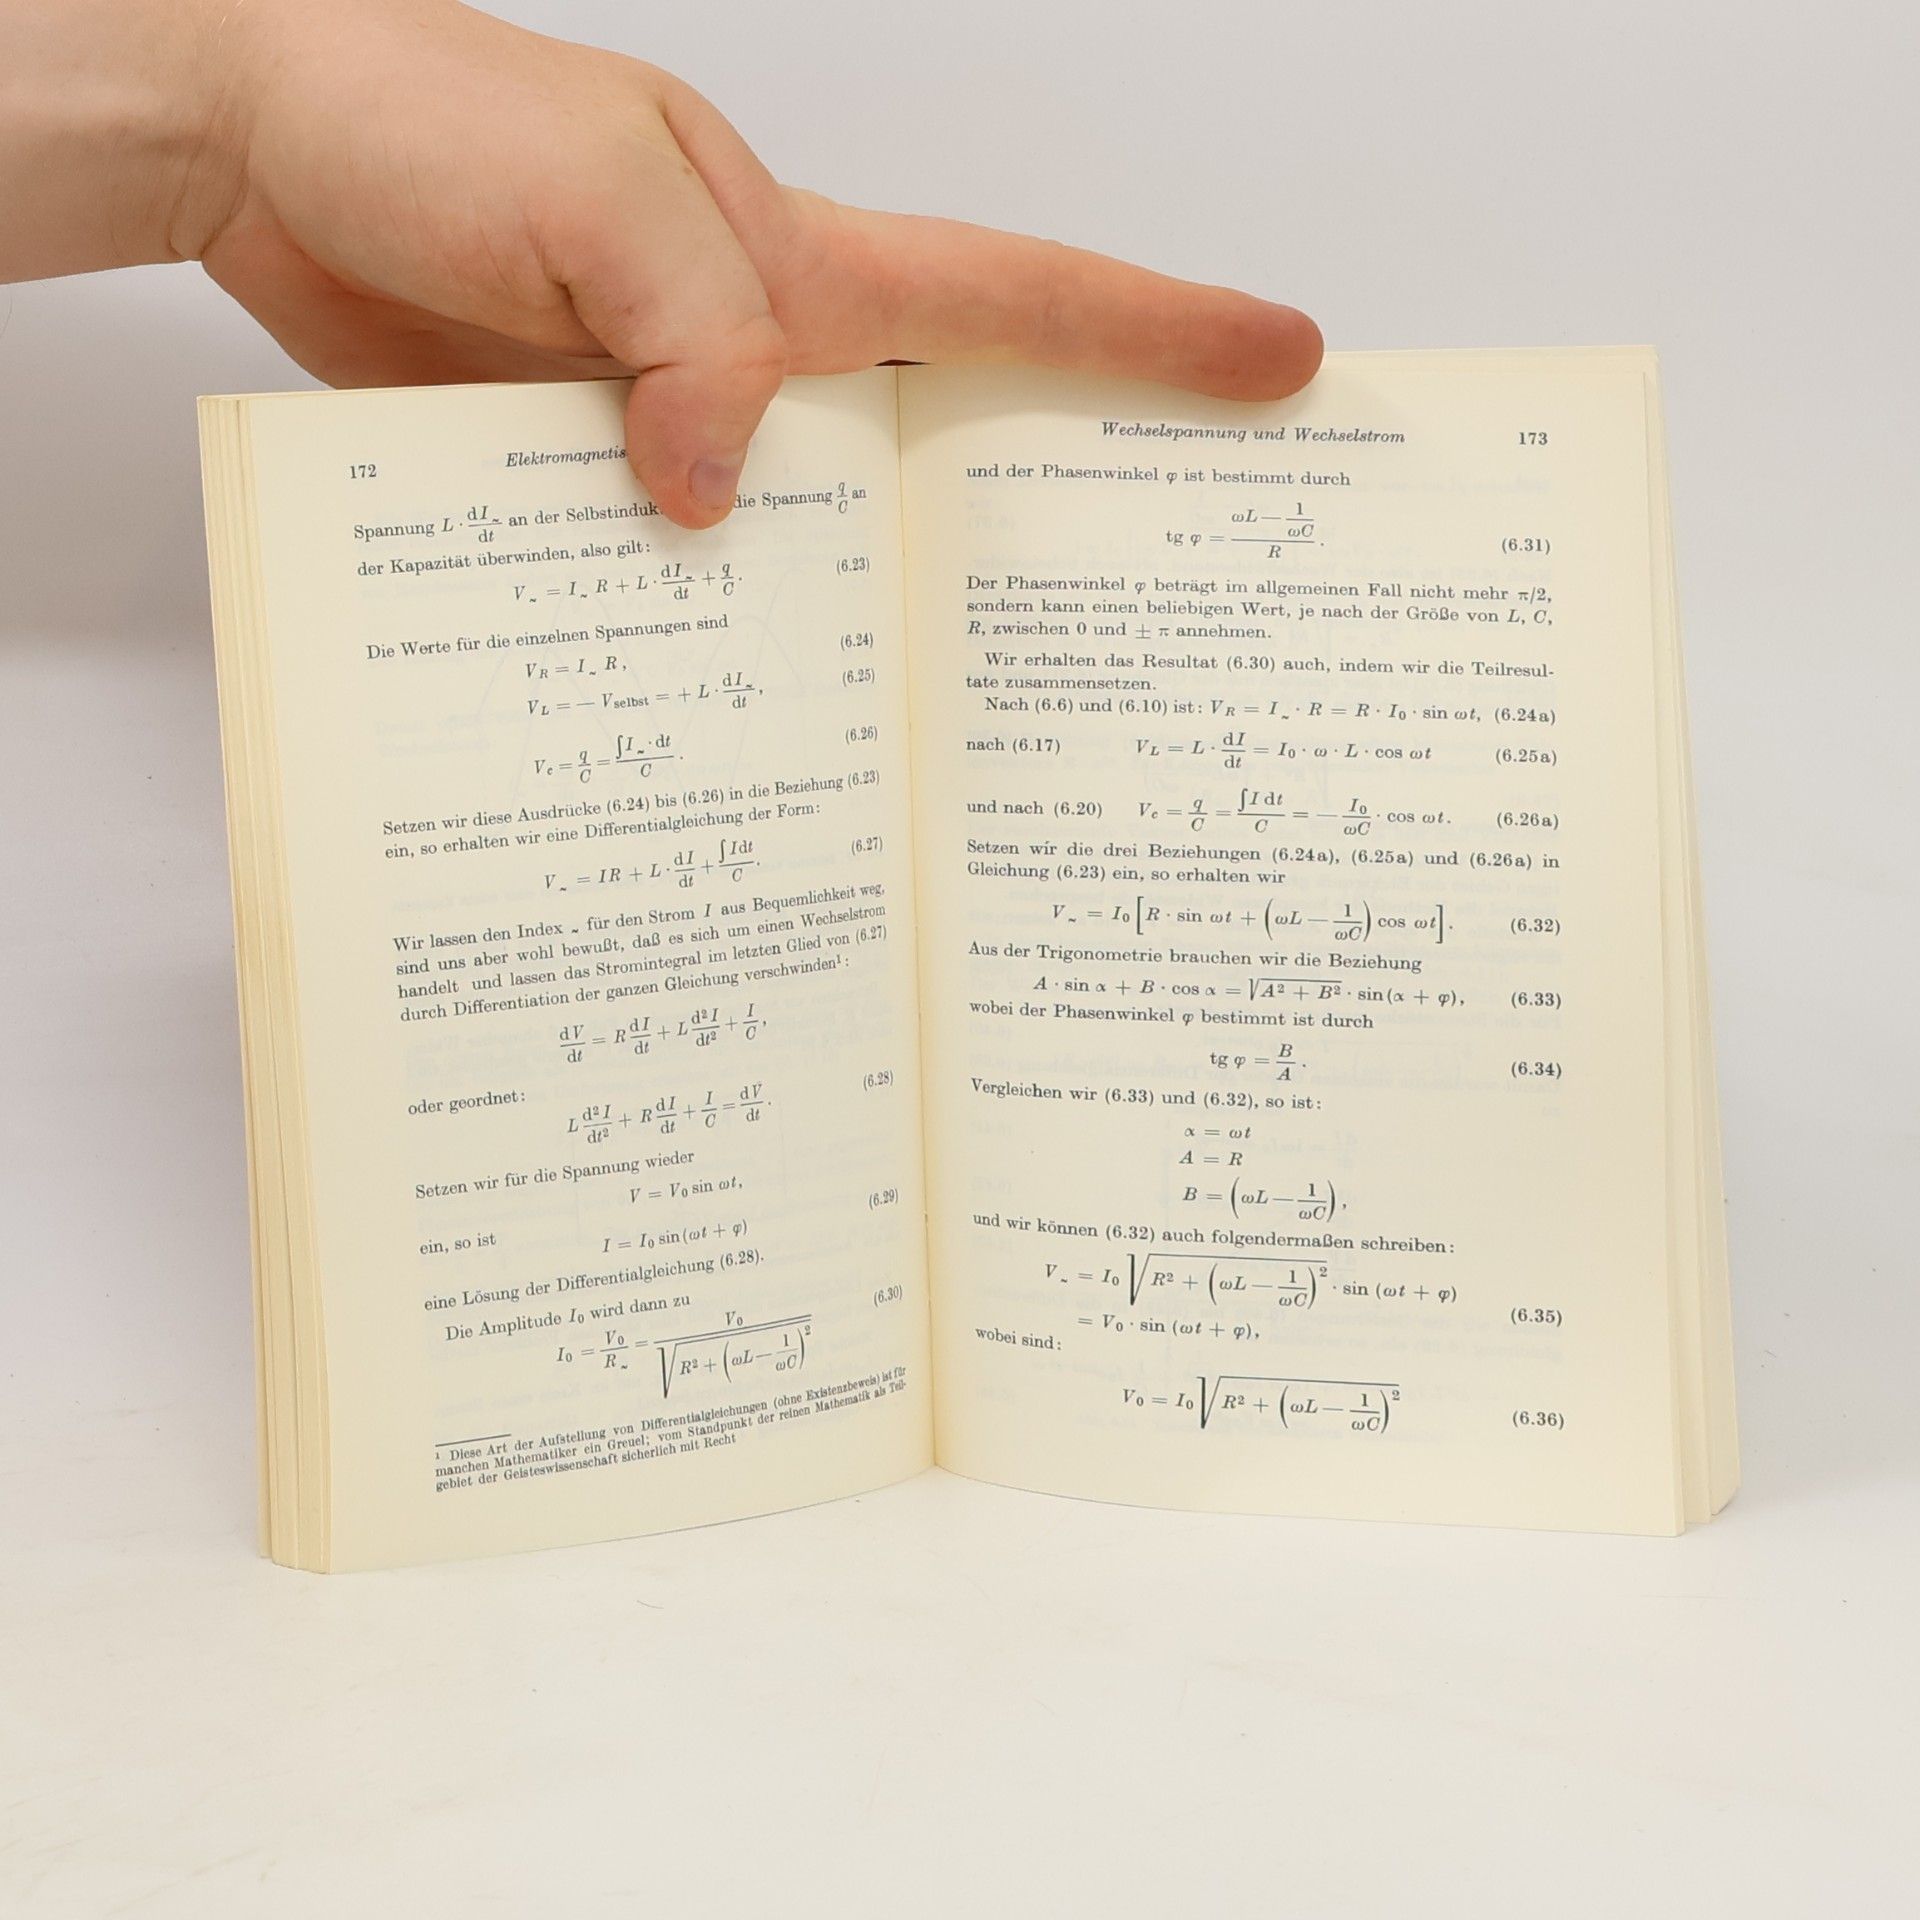 172 Elektromagnetis
Spannung L · dI~/dt an der Selbstinduk die Spannung q/C an
der Kapazität überwinden, also gilt:
V~ = I~ R + L · dI~/dt + q/C. (6.23)
Die Werte für die einzelnen Spannungen sind
V_R = I~ R, (6.24)
V_L = — V_selbst = + L · dI~/dt, (6.25)
V_c = q/C = ∫I~ · dt/C. (6.26)
Setzen wir diese Ausdrücke (6.24) bis (6.26) in die Beziehung (6.23)
ein, so erhalten wir eine Differentialgleichung der Form:
V~ = IR + L · dI/dt + ∫Idt/C. (6.27)
Wir lassen den Index ~ für den Strom I aus Bequemlichkeit weg,
sind uns aber wohl bewußt, daß es sich um einen Wechselstrom
handelt und lassen das Stromintegral im letzten Glied von (6.27)
durch Differentiation der ganzen Gleichung verschwinden¹:
dV/dt = R dI/dt + L d²I/dt² + I/C,
oder geordnet:
L d²I/dt² + R dI/dt + I/C = dV/dt. (6.28)
Setzen wir für die Spannung wieder
V = V₀ sin ωt,
ein, so ist I = I₀ sin (ωt + φ) (6.29)
eine Lösung der Differentialgleichung (6.28).
Die Amplitude I₀ wird dann zu
I₀ = V₀/R~ = V₀/√(R² + (ωL — 1/ωC)²) (6.30)
¹ Diese Art der Aufstellung von Differentialgleichungen (ohne Existenzbeweis) ist für
manchen Mathematiker ein Greuel; vom Standpunkt der reinen Mathematik als Teil-
gebiet der Geisteswissenschaft sicherlich mit Recht
Wechselspannung und Wechselstrom 173
und der Phasenwinkel φ ist bestimmt durch
tg φ = (ωL — 1/ωC)/R. (6.31)
Der Phasenwinkel φ beträgt im allgemeinen Fall nicht mehr π/2,
sondern kann einen beliebigen Wert, je nach der Größe von L, C,
R, zwischen 0 und ± π annehmen.
Wir erhalten das Resultat (6.30) auch, indem wir die Teilresul-
tate zusammensetzen.
Nach (6.6) und (6.10) ist: V_R = I~ · R = R · I₀ · sin ωt, (6.24a)
nach (6.17) V_L = L · dI/dt = I₀ · ω · L · cos ωt (6.25a)
und nach (6.20) V_c = q/C = ∫I dt/C = — I₀/ωC · cos ωt. (6.26a)
Setzen wir die drei Beziehungen (6.24a), (6.25a) und (6.26a) in
Gleichung (6.23) ein, so erhalten wir
V~ = I₀ [R · sin ωt + (ωL — 1/ωC) cos ωt]. (6.32)
Aus der Trigonometrie brauchen wir die Beziehung
A · sin α + B · cos α = √(A² + B²) · sin (α + φ), (6.33)
wobei der Phasenwinkel φ bestimmt ist durch
tg φ = B/A. (6.34)
Vergleichen wir (6.33) und (6.32), so ist:
α = ωt
A = R
B = (ωL — 1/ωC),
und wir können (6.32) auch folgendermaßen schreiben:
V~ = I₀ √(R² + (ωL — 1/ωC)²) · sin (ωt + φ)
= V₀ · sin (ωt + φ), (6.35)
wobei sind:
V₀ = I₀ √(R² + (ωL — 1/ωC)²) (6.36)